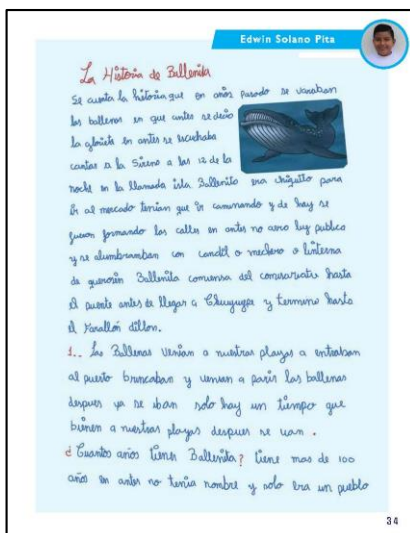 Edwin Solano Pita
La Historia de Ballenita
Se cuenta la historia que en años pasado se varaban
las ballenas en que antes se decia
la glorieta en antes se escuchaba
cantar a la Sirena a las 12 de la
noche en la llamada isla Ballenita era chiquito para
ir al mercado tenian que ir caminando y de hay se
fueron formando las calles en antes no avia luz publica
y se alumbraban con candil o mechero o linterna
de querosin Ballenita comiensa del comisariato hasta
el puente antes de llegar a Chuyuype y termina hasta
el Farallón dillon.
1.. Las Ballenas venian a nuestras playas a entraban
al puerto brincaban y venian a parir las ballenas
despues ya se iban solo hay un tiempo que
bienen a nuestras playas despues se van .
¿ Cuantos años tiener Ballenita? tiene mas de 100
años en antes no tenia nombre y solo era un pueblo
34